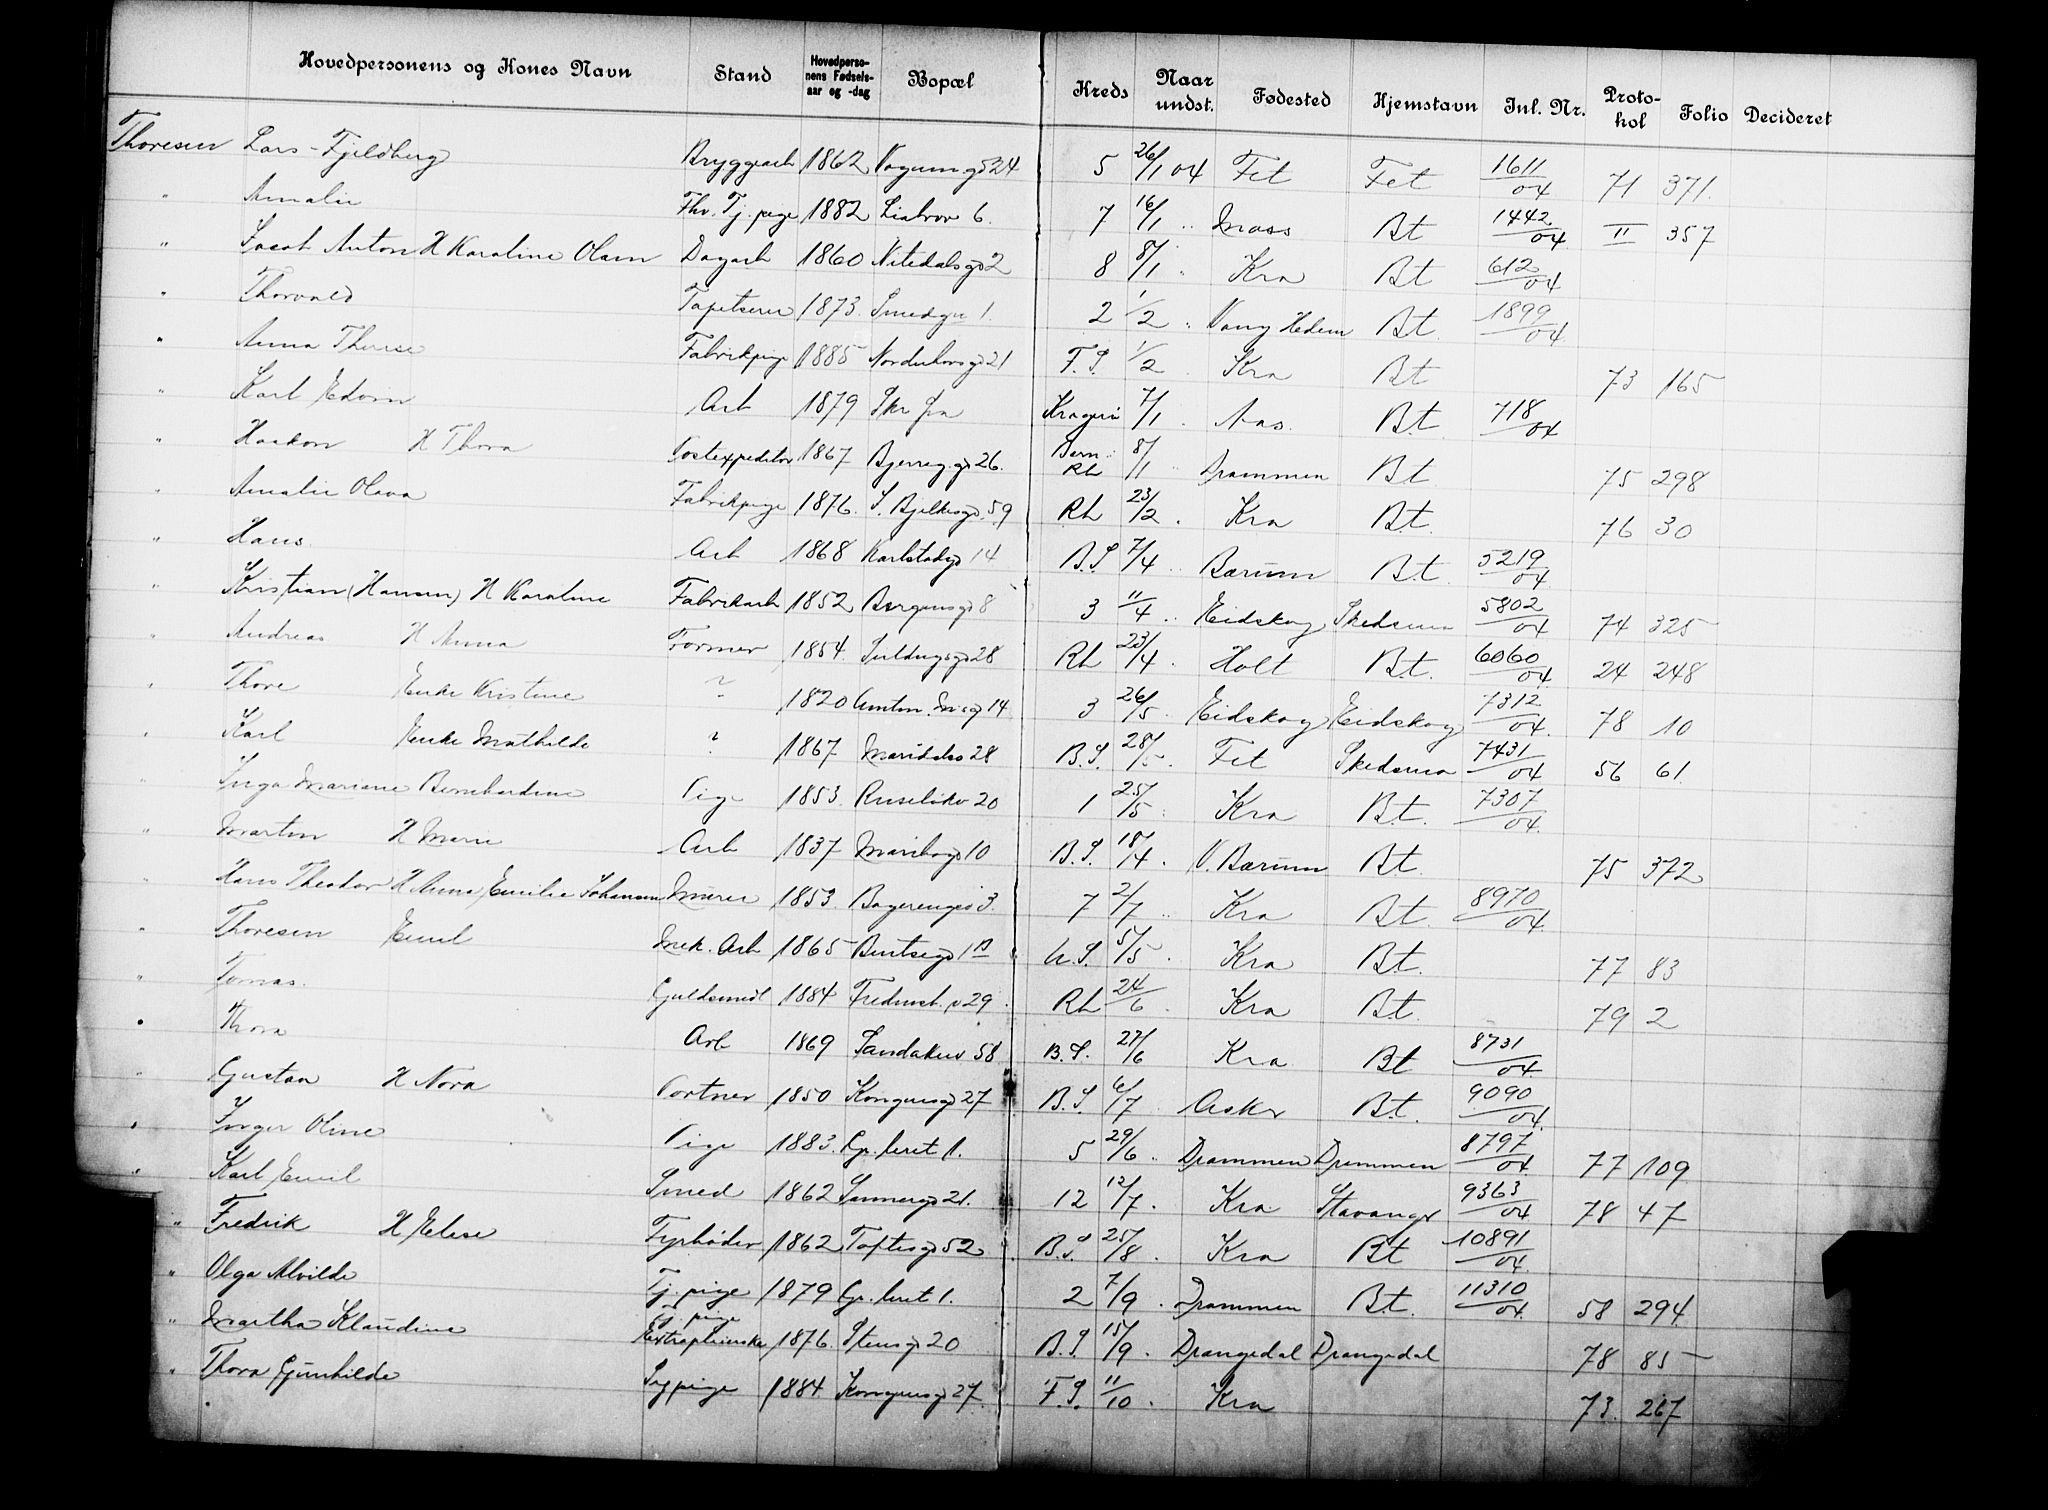 Hovedpersonens og Kones Navn Stand Hovedperso-nens Fødsels-aar og -dag Bopæl Kreds Naar undst. Fødested Hjemstavn Inl. Nr. Proto-kol Folio Decideret
Thoresen Lars Fjeldberg Bryggearb 1862 Vognmgd 24 5 26/1 04 Fet Fet 1611/04 71 371.
" Amalie Fhv. Tj. pige 1882 Liabrov 6. 7 16/1 " Moss Bt 1442/04 II 357
" Jacob Anton H Karoline Olsen Dagarb 1860 Nitedalsgd 2 8 8/1 " Kra Bt 612/04
" Thorvald Tapetserer 1873. Smedgn 1. 2 1/2 " Vang Hedem Bt. 1899/04
" Anna Therese Fabrikpige 1885 Norderhovsgd 21 F.S. 1/2 Kra Bt 73 165
" Karl Edvin Arb 1879 Skr fra Kragerø 7/1 " Aas. Bt. 718/04
" Haakon H Thora Postexpeditør 1867 Bjerreg.gd 26. Barn Rh 8/1 " Drammen Bt 75 298
" Amalie Olava Fabrikpige 1876. J. Bjelkesgd. 59 Rh 23/2 . Kra Bt. 76 30
" Hans. Arb 1868 Karlstadgd 14 B.S. 7/4 " Bærum Bt. 5219/04
" Kristian (Hansen) H Karoline Fabrikarb 1852 Bergensgd 8 3 11/4 " Eidskog Skedsmo 5802/04 74 325
" Andreas H Anna Former 1854. 28 Rh 23/4 . Holt Bt. 6060/04 24 248
" Thore Enke Kristine ? 1820 14 3 26/5 . Eidskog Eidskog 7312/04. 78 10
" Karl Enke Mathilde ? 1867 Maridalsv 28 B.S. 28/5. Fet Skedsmo 7431/04 56 61.
" Inga Mariane Bernhardine Pige 1853. Ruseløkv 20 1 25/5 . Kra Bt. 7307/04.
" Martin H Marie Arb 1837 Maribogd 10 B.S. 18/4. V. Bærum Bt. 75 372
" Hans Theodor H Anna Emilie Johansen Murer 1853. 3. 7 2/7 " Kra Bt. 8970/04.
" Thoresen Emil Mek. Arb 1865 Bentsegd 1 B U.S. 5/5 . Kra Bt. 77 83
" Tomas. Guldsmed 1884 Fredensb. v 29 . Rh 24/6 . Kra Bt. 79 2
" Thora Arb 1869 Sandakerv 58 B.S. 27/6 Kra Bt 8731/04.
" Gustav H Nora Portner 1850 Kongensgd 27 B.S. 6/7 . Asker Bt. 9090/04.
" Inger Oline Pige 1883. Gr. leret 1. 5 29/6 " Drammen Drammen 8797/04. 77 109
" Karl Emil Smed 1862 Sannergd 21. 12 12/7 . Kra Stavanger 9363/04 78 47
" Fredrik H Elise Fyrbøder 1862 Toftesgd 52 B.S. 25/8 . Kra Bt 10891/04.
" Olga Alvilde Tj. pige 1879 Gr. leret 1. 2 7/9 . Drammen Bt. 11310/04. 58 294.
" Martha Klaudine Tj. pige 1876. Stensgd 20 B.S. 15/9 . Drangedal Drangedal 78 85
" Thora Gunhilde Sypige 1884 Kongensgd 27. F.S. 11/10 . Kra 73. 267